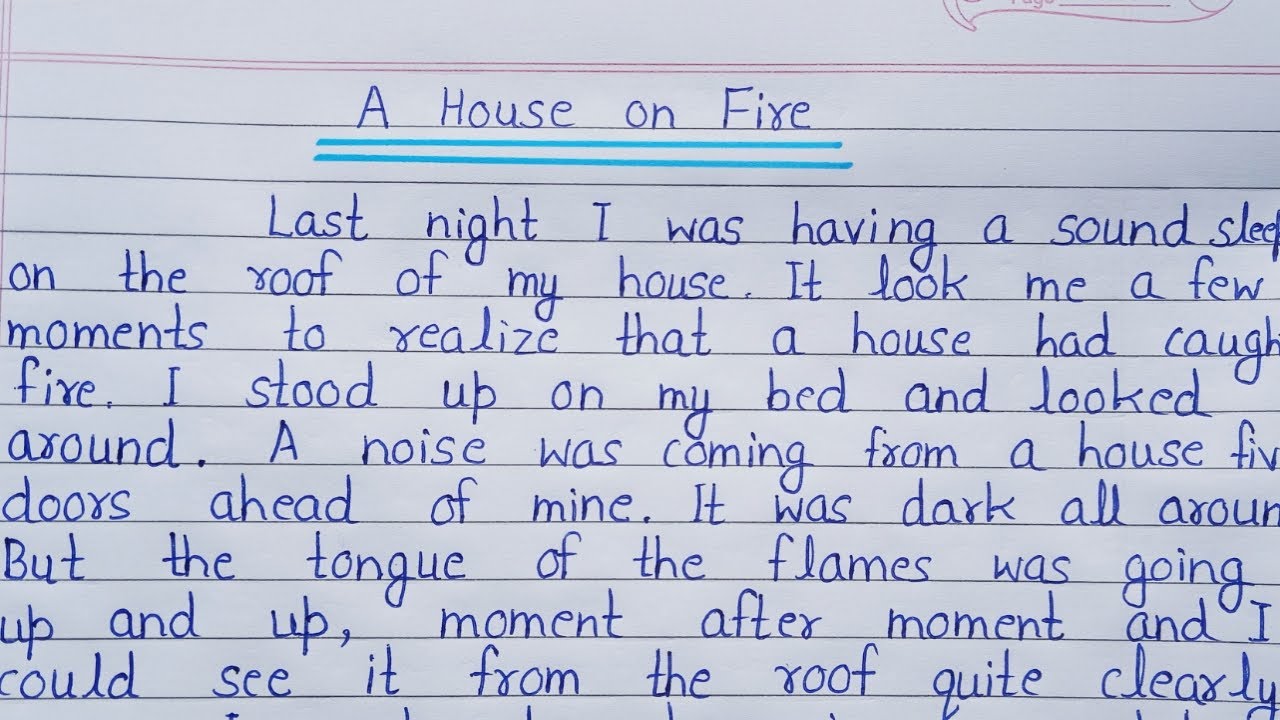 Page
A House on Fire
Last night I was having a sound sleep
on the roof of my house. It look me a few
moments to realize that a house had caugh
fire. I stood up on my bed and looked
around. A noise was coming from a house fiv
doors ahead of mine. It was dark all aroun
But the tongue of the flames was going
up and up, moment after moment and I
could see it from the roof quite clearly